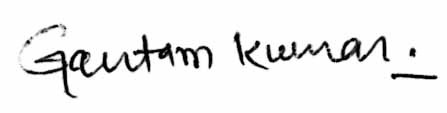 Gautam Kumar.